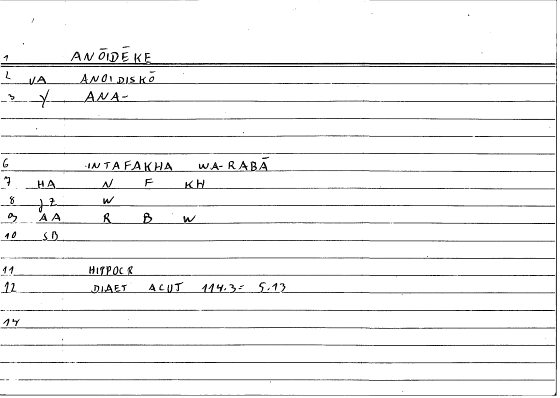 1 ANŌIDĒKE
2 VA ANOIDISKŌ
3 Y ANA-
6 INTAFAKHA WA-RABĀ
7 HA N F KH
8 jz W
9 AA R B W
10 SB
11 HIPPOCR
12 DIAET ACUT 114.3 = 5.13
14